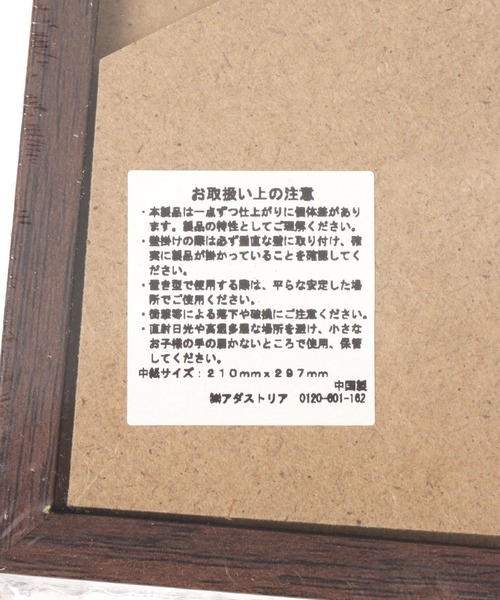 お取扱い上の注意
・本製品は一点ずつ仕上がりに個体差があり
ます。製品の特性としてご理解ください。
・壁掛けの際は必ず垂直な壁に取り付け、確
実に製品が掛かっていることを確認してく
ださい。
・置き型で使用する際は、平らな安定した場
所でご使用ください。
・衝撃等による落下や破損にご注意ください。
・直射日光や高温多湿な場所を避け、小さな
お子様の手の届かないところで使用、保管
してください。
中紙サイズ：210mm×297mm
中国製
㈱アダストリア 0120-601-162